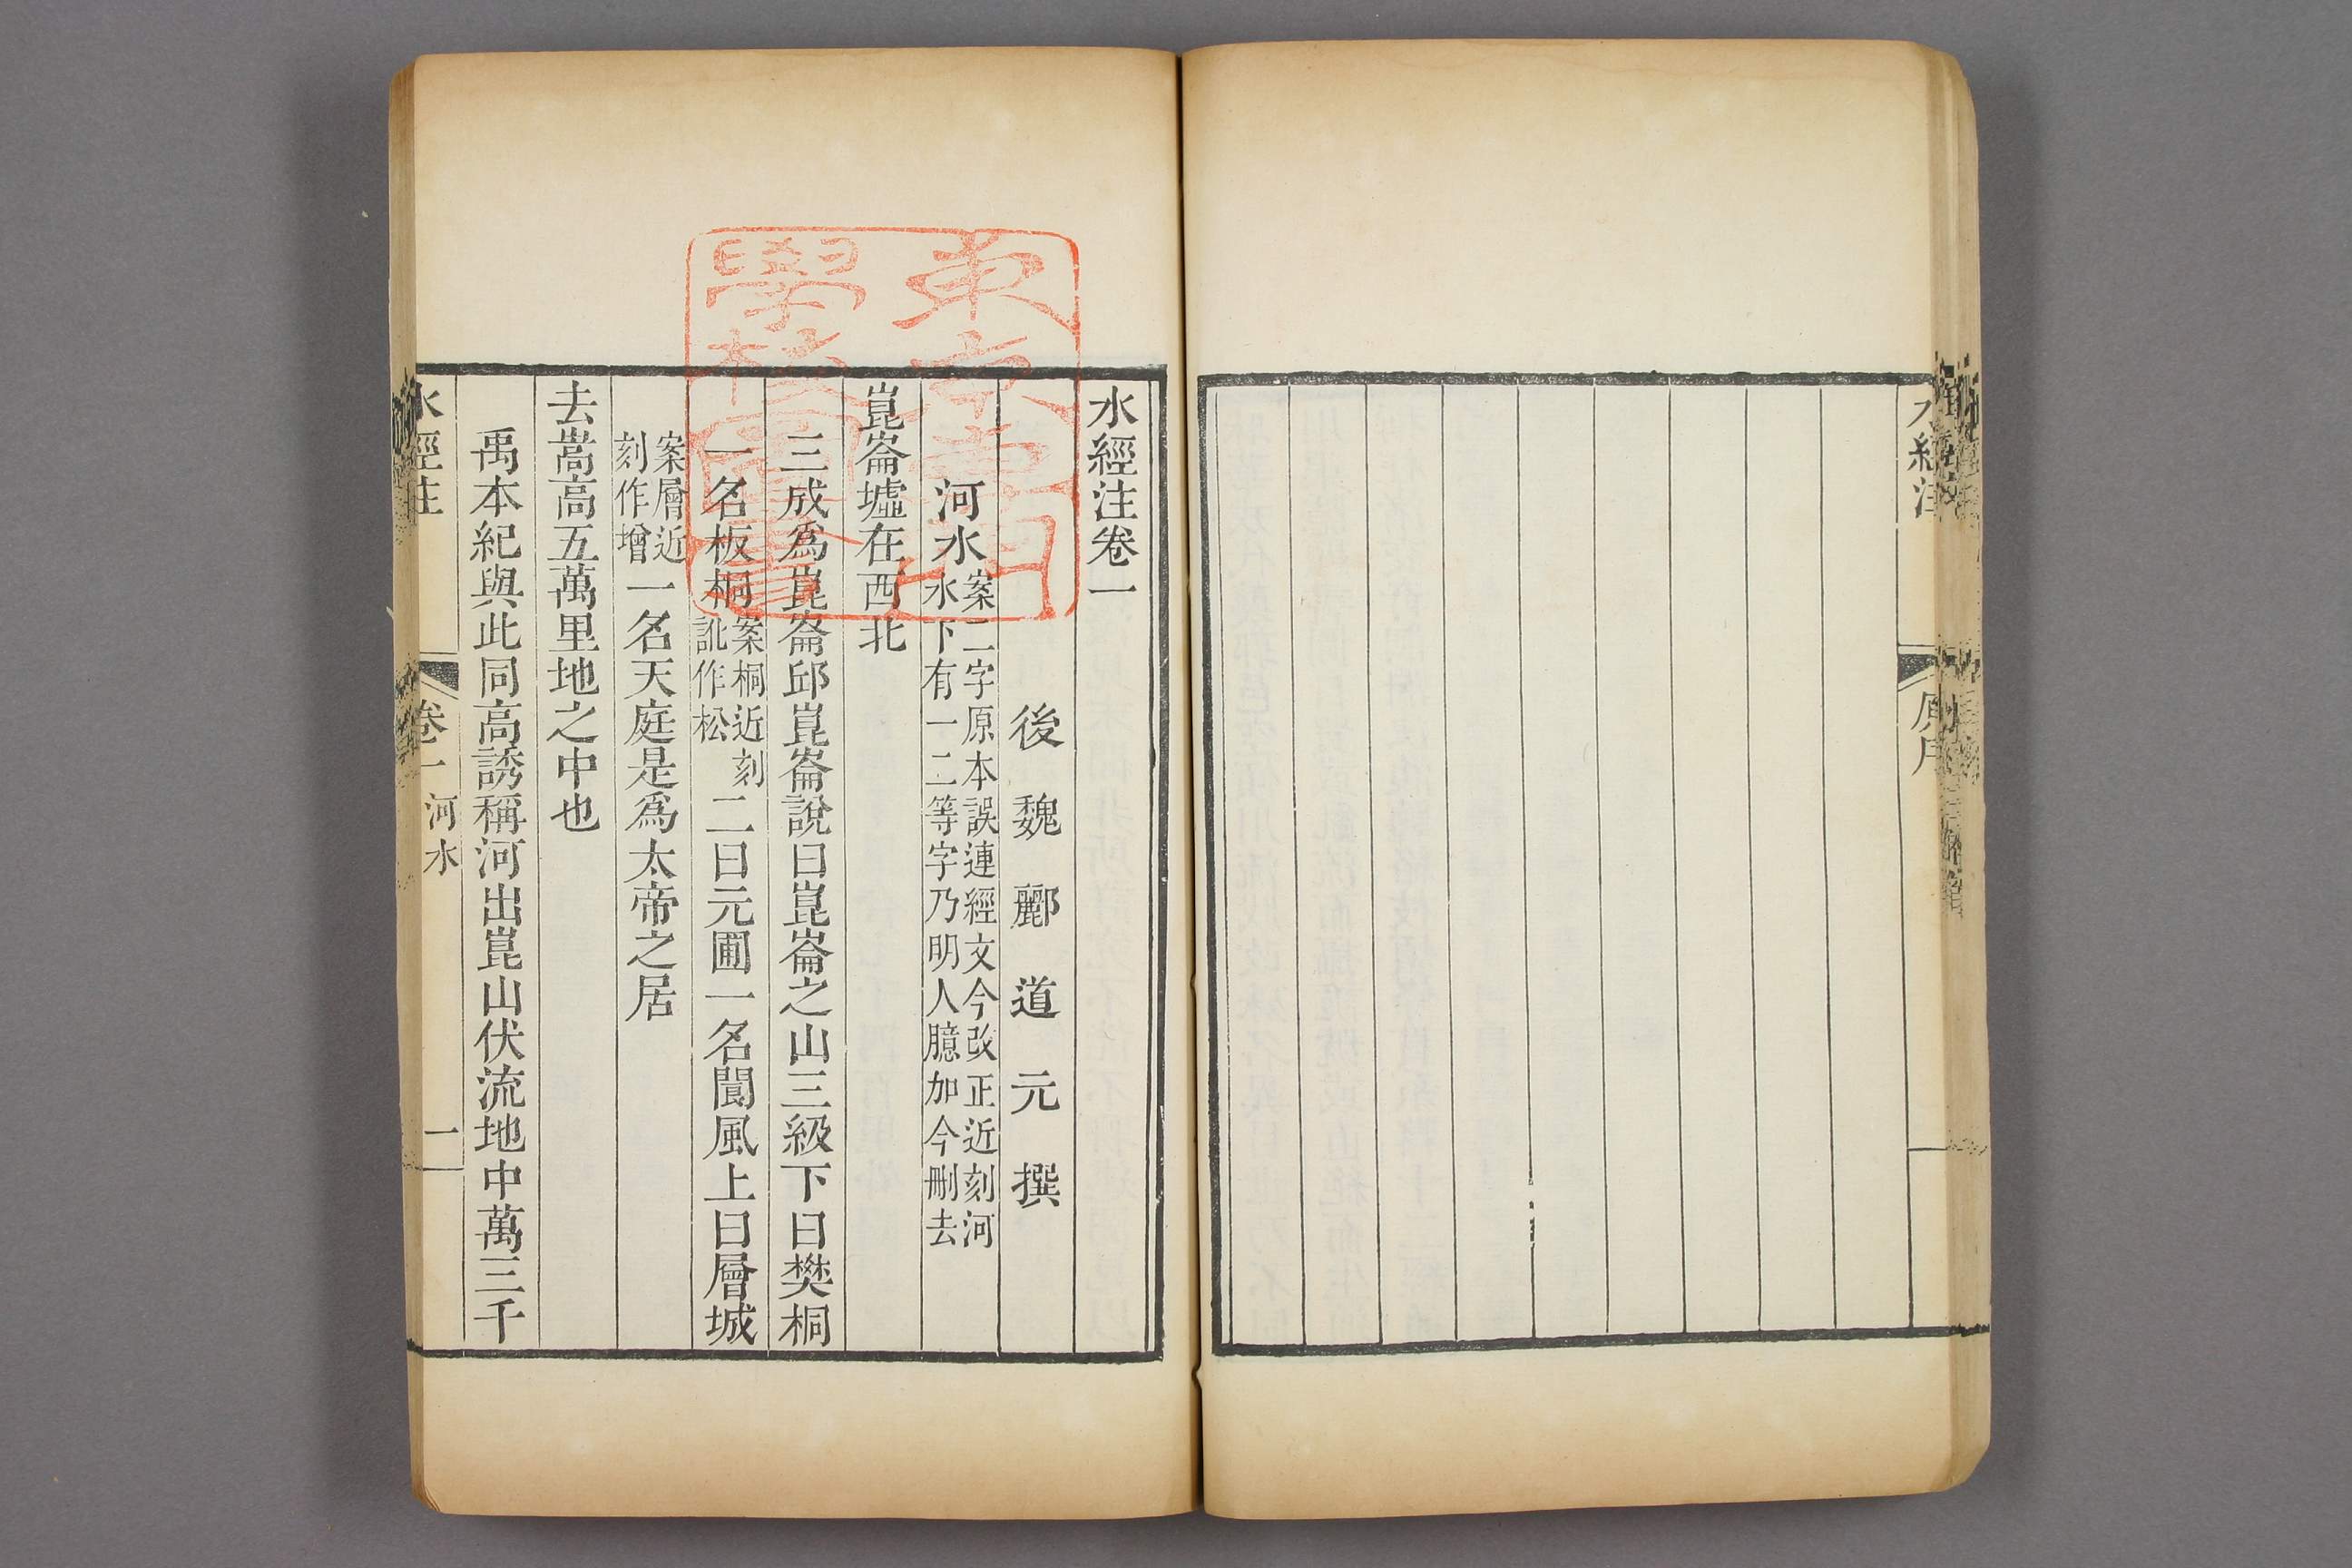 水經注
原序
水經注卷一
後魏酈道元撰
河水案二字原本誤連經文今改正近刻河水下有一二等字乃明人臆加今刪去
崑崙墟在西北
三成爲崑崙邱崑崙說曰崑崙之山三級下曰樊桐
一名板桐案桐近刻訛作松二曰元圃一名閬風上曰層城
案層近刻作增一名天庭是爲太帝之居
去嵩高五萬里地之中也
禹本紀與此同高誘稱河出崑山伏流地中萬三千
水經注
卷一 河水
一